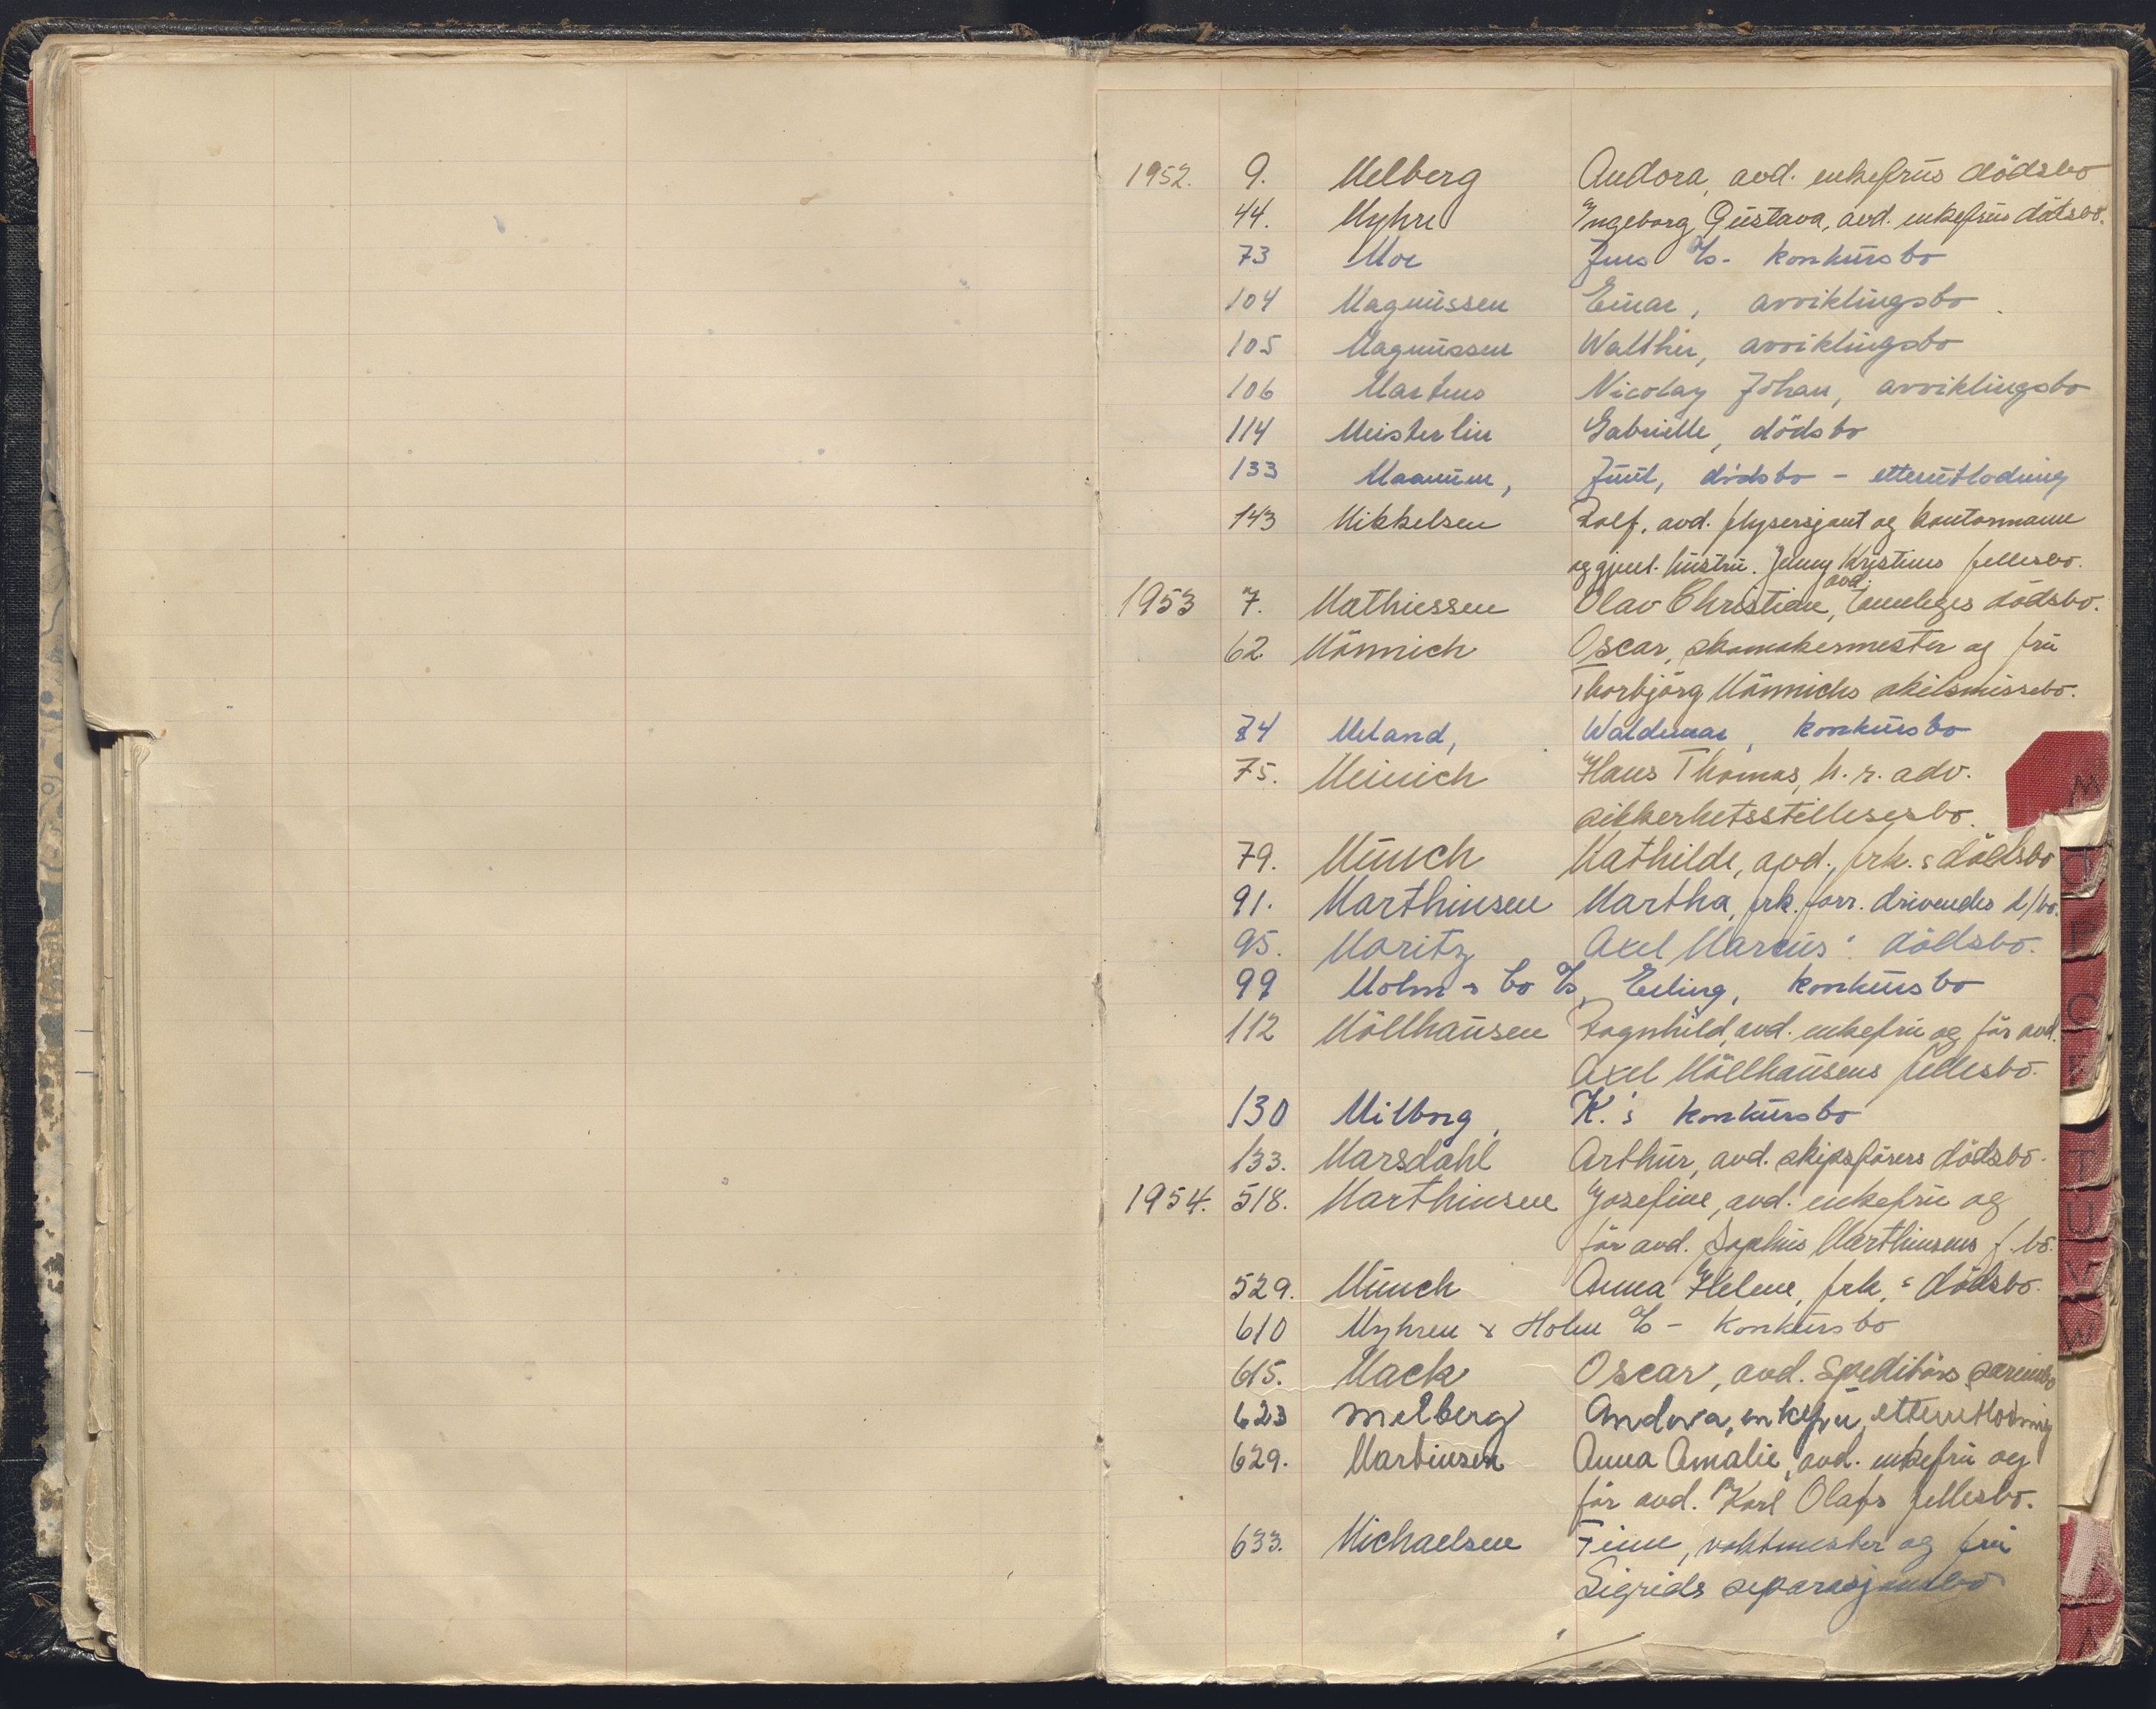 1952. 9. Melberg Andora, avd. enkefrus dödsbo
44. Myhre Ingeborg Gustava, avd. enkefrus dödsbo.
73 Moe Jens A/S - konkursbo
104 Magnussen Einar, avviklingsbo
105 Magnussen Walther, avviklingsbo
106 Martens Nicolay Johan, avviklingsbo
114 Meisterlin Gabrielle, dödsbo
133 Maanum, Juul, dødsbo - etterutlodning
143 Mikkelsen Rolf, avd. flysersjant og kontormann
og gjenl. hustru Jenny Kristines fellesbo.
avd.
1953 7. Mathiessen Olav Christian, tannleges dödsbo.
62 Mönnich Oscar, skomakermester og fru
Thorbjörg Mönnichs skilsmissebo.
74 Meland, Waldemar, konkursbo
75. Meinich Hans Thomas, h.r. adv.
sikkerhetsstillelsesbo.
79. Münch Mathilde, avd., frk.s dödsbo
91. Marthinsen Martha, frk. forr. drivendes d/bo.
95. Moritz Axel Marcus' dödsbo.
99 Molm & Co A/S, Erling, konkursbo
112 Möllhausen Ragnhild, avd. enkefru og för avd.
Axel Möllhausens fellesbo.
130 Milborg, K.'s konkursbo
133. Marsdahl Arthur, avd. skipsförers dödsbo.
1954. 518. Marthinsen Josefine, avd. enkefru og
för avd. Sophus Marthinsens f. bo.
529. Münch Anna Helene, frk.s dödsbo.
610 Myhren & Holm A/S - Konkursbo
615. Mack Oscar, avd. Speditörs særeiebo
623 Melberg Andora, enkefru, etterutlodning
629. Martinsen Anna Amalie, avd. enkefru og
för avd. Karl Olafs fellesbo.
633. Michaelsen Finn, vaktmester og fru
Sigrids separasjonsbo
M
T
U
V
W